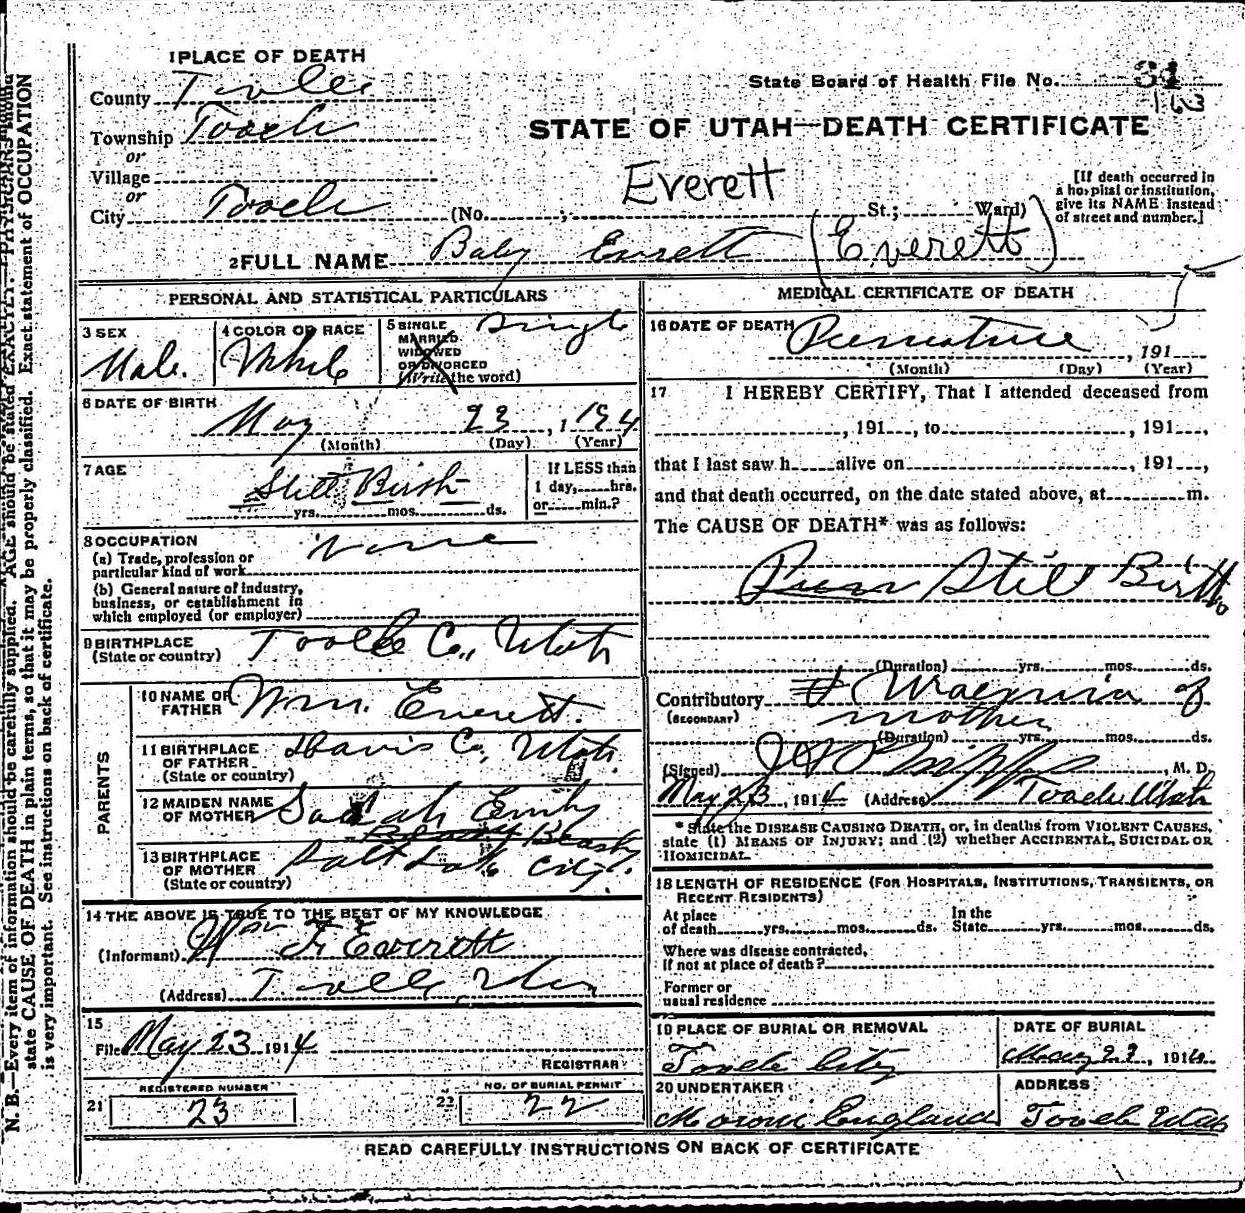 1 PLACE OF DEATH
County Tooele
State Board of Health File No. 31
163
Township Tooele
STATE OF UTAH—DEATH CERTIFICATE
or
Village
or
City Tooele (No. ; St.; Ward)
Everett
[If death occurred in a hospital or institution, give its NAME instead of street and number.]
2 FULL NAME Baby Everett (Everett)
PERSONAL AND STATISTICAL PARTICULARS
3 SEX Male.
4 COLOR OR RACE White
5 SINGLE MARRIED WIDOWED OR DIVORCED (Write the word) Single
6 DATE OF BIRTH May 23, 1914
(Month) (Day) (Year)
7 AGE Still Birth
yrs. mos. ds.
If LESS than 1 day, hrs. or min.?
8 OCCUPATION None
(a) Trade, profession or particular kind of work
(b) General nature of industry, business, or establishment in which employed (or employer)
9 BIRTHPLACE (State or country) Tooele Co., Utah
PARENTS
10 NAME OF FATHER Wm. Everett.
11 BIRTHPLACE OF FATHER (State or country) Davis Co, Utah.
12 MAIDEN NAME OF MOTHER Sarah Emily
13 BIRTHPLACE OF MOTHER (State or country) Salt Lake City.
14 THE ABOVE IS TRUE TO THE BEST OF MY KNOWLEDGE
(Informant) Wm F. Everett
(Address) Tooele, Utah
15
Filed May 23 1914
REGISTRAR
21 REGISTERED NUMBER 23
22 NO. OF BURIAL PERMIT 22
MEDICAL CERTIFICATE OF DEATH
16 DATE OF DEATH Premature, 191
(Month) (Day) (Year)
17 I HEREBY CERTIFY, That I attended deceased from
, 191 , to , 191 ,
that I last saw h alive on , 191 ,
and that death occurred, on the date stated above, at m.
The CAUSE OF DEATH* was as follows:
Still Birth
(Duration) yrs. mos. ds.
Contributory (SECONDARY) Uraemia of
mother
(Duration) yrs. mos. ds.
(Signed) , M. D.
May 23, 1914 (Address) Tooele Utah
* State the DISEASE CAUSING DEATH, or, in deaths from VIOLENT CAUSES,
state (1) MEANS OF INJURY; and (2) whether ACCIDENTAL, SUICIDAL OR
HOMICIDAL.
18 LENGTH OF RESIDENCE (FOR HOSPITALS, INSTITUTIONS, TRANSIENTS, OR
RECENT RESIDENTS)
At place of death yrs. mos. ds. In the State yrs. mos. ds.
Where was disease contracted, if not at place of death?
Former or usual residence
19 PLACE OF BURIAL OR REMOVAL Tooele City
DATE OF BURIAL May 23, 1914
20 UNDERTAKER Moroni England
ADDRESS Tooele Utah
READ CAREFULLY INSTRUCTIONS ON BACK OF CERTIFICATE
N. B.—Every item of information should be carefully supplied. AGE should be stated EXACTLY. PHYSICIANS should
state CAUSE OF DEATH in plain terms, so that it may be properly classified. Exact statement of OCCUPATION
is very important. See instructions on back of certificate.